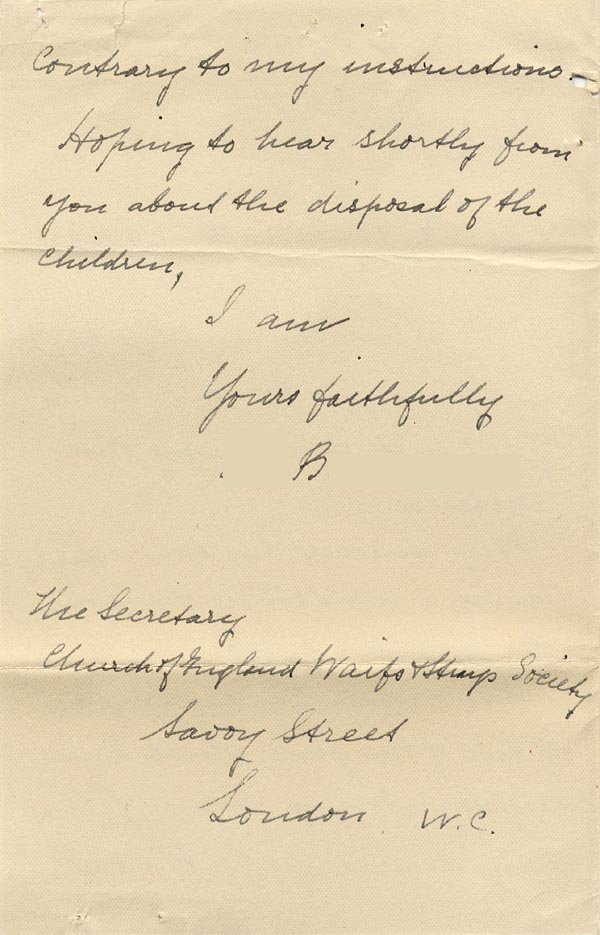 Contrary to my instructions.
Hoping to hear shortly from
you about the disposal of the
children,
I am
Yours faithfully
B
The Secretary
Church of England Waifs & Strays Society
Savoy Street
London W.C.